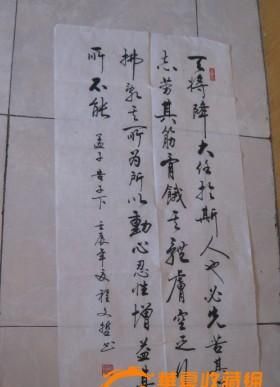 天将降大任於斯人也必先苦其
志劳其筋骨餓其體膚空乏
拂亂其所为所以動心忍性增益其
所不能 孟子告子下 壬辰年夏 程文
华夏收藏网